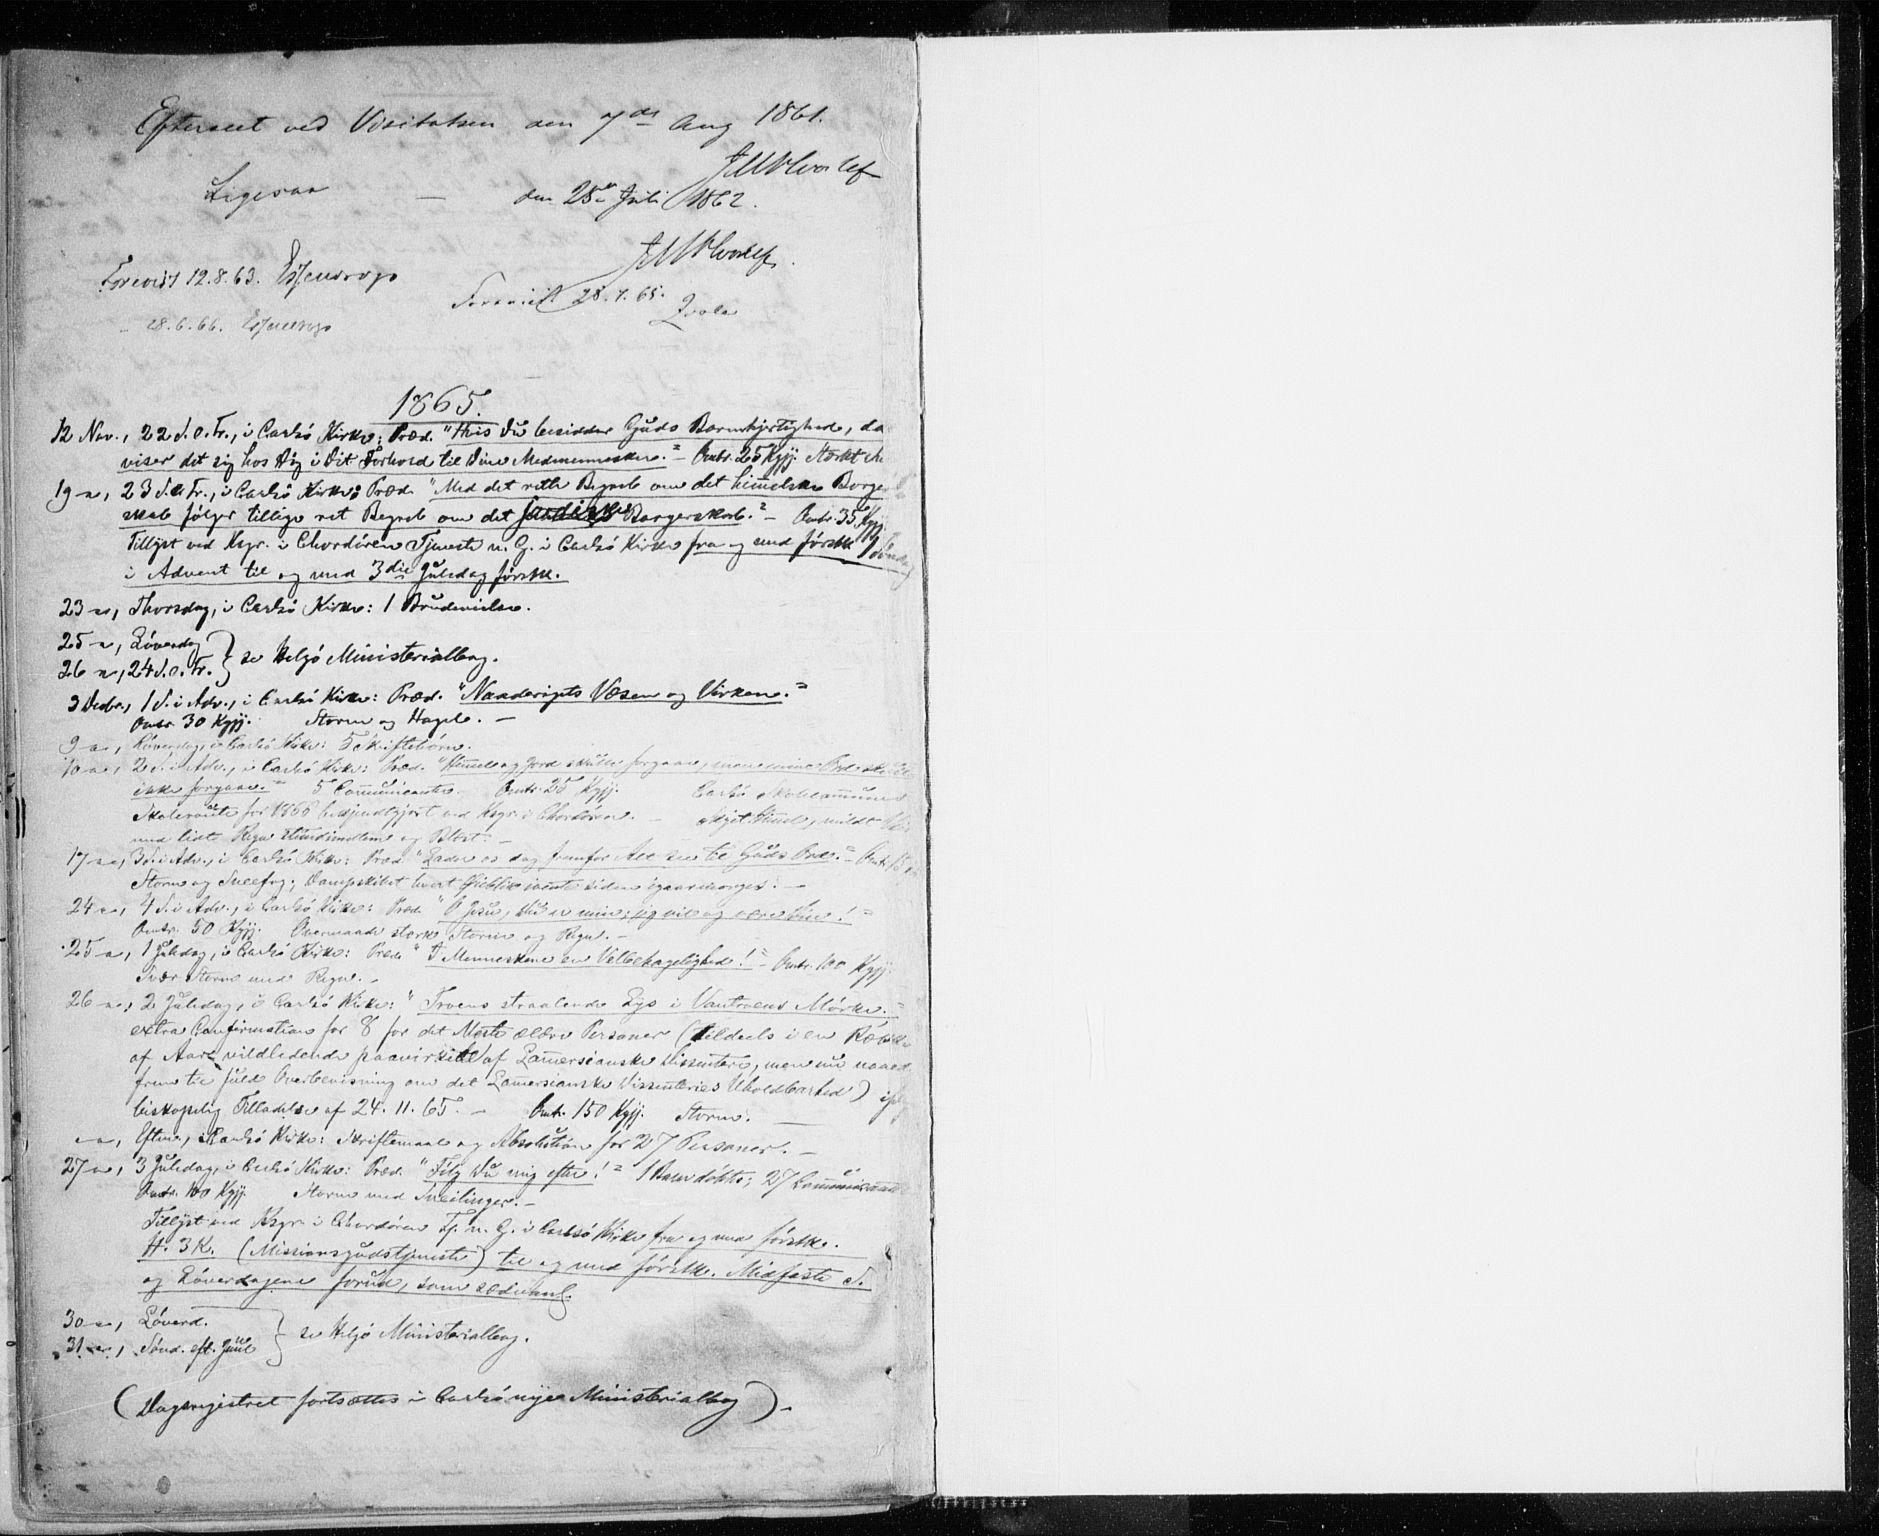 1865.
Efterseet ved Visitatsen den 7de Aug 1861.
Ligesaa — den 28de Juli 1862.
Forevist 12.8.63. Essendrop
Foreviist 28.7.65.
28.6.66. Essendrop
1865.
12 Nov., 22 S.e.Tr., i Carlsö Kirke: Præd. "Hvis Du besidder Guds Barmhjertighed, da
viser det sig hos Dig i Dit Forhold til Dine Medmennesker." – Omtr. 25 Kgfj. Stærkt
19 –, 23 S.e.Tr., i Carlsö Kirke: Præd. "Med det rette Begreb om det himmelske Borger
skab følger tillige ret Begreb om det jordiske Borgerskab." – Omtr. 35 Kgfj.
Tillyst ved Ksgr. i Chordören Tjeneste m. G. i Carlsö Kirke fra og med førstk. 1 Søndag
i Advent til og med 3die Juledag førstk.
23 –, Thorsdag, i Carlsö Kirke: 1 Brudevielse.
25 –, Løverdag
26 –, 24 S.e.Tr. } se Helgö Ministerialbog.
3 Decbr., 1 S. i Adv., i Carlsö Kirke: Præd. "Naaderigets Væsen og Virken."
Omtr. 30 Kgfj. Storm og Hagel. –
9 –, Løverdag, i Carlsö Kirke: 5 Skriftebörn.
10 –, 2 S. i Adv., i Carlsö Kirke: Præd. "Himmel og Jord skulle forgaae, men mine Ord skulle
ikke forgaae." 5 Communicanter. Omtr. 25 Kgfj. Carlsö Skolecommunes
Skoleroute for 1866 bekjendtgjort ved Ksgr. i Chordören. – Skyet Himmel, mildt Veir
med lidt Regn stundimellem og Blæst. –
17 –, 3 S. i Adv., i Carlsö Kirke: Præd. "Lader os dog fremfor Alt see til Guds Ord." – Omtr. 15
Storm og Sneefog; Dampskibet hvert Øieblik ivente siden igaarmorges. –
24 –, 4 S. i Adv., i Carlsö Kirke: Præd. "O Jesu, Du er min; jeg vil og være Din!"
Omtr. 50 Kgfj. Overmaade stærk Storm og Regn. –
25 –, 1 Juledag, i Carlsö Kirke: Præd. "I Menneskene en Velbehagelighed!" – Omtr. 100 Kgfj.
Svær Storm med Regn. –
26 –, 2 Juledag, i Carlsö Kirke: "Troens straalende Lys i Vantroens Mørke."
extra Confirmation for 8 for det Meste ældre Personer (tildeels i en Række
af Aar vildledende paavirkede af Lammersianske Dissentere, men nu naaede
frem til fuld Overbevisning om det Lammersianske Dissenteries Uholdbarhed)
biskopelig Tilladelse af 24.11.65. – Omtr. 150 Kgfj. Storm. –
– –, Efterm., i Carlsö Kirke: Skriftemaal og Absolution for 27 Personer. –
27 –, 3 Juledag, i Carlsö Kirke: Præd. "Følg Du mig efter!" 1 Barn døbt; 27 Communicanter
Omtr. 100 Kgfj. Storm med Sneilinger. –
Tillyst ved Ksgr. i Chordören Tj. m. G. i Carlsö Kirke fra og med førstk.
H. 3 K. (Missionsgudstjeneste) til og med førstk. Midfaste S.
og Løverdagene forud, som sædvanl.
30 –, Løverd.
31 –, Sønd. eft. Juul } se Helgö Ministerialbog.
(Dagsregistret fortsættes i Carlsö nye Ministerialbog). –